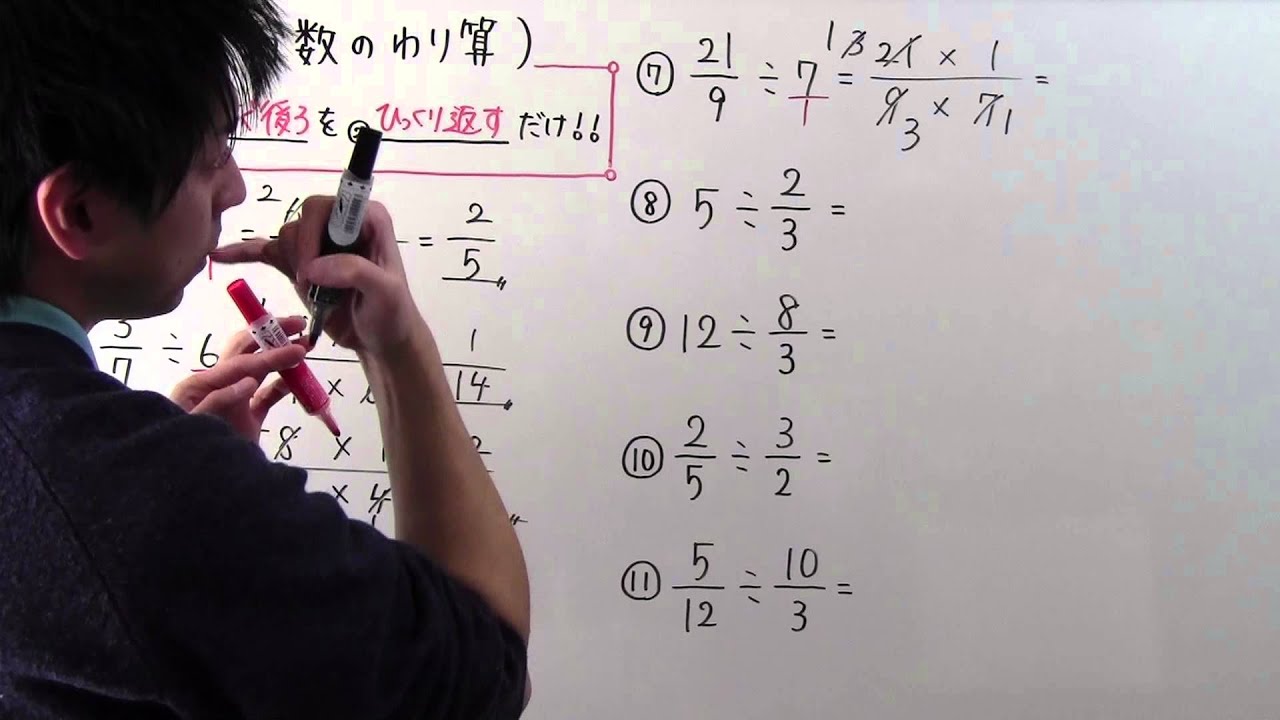 数のわり算)
後ろを②ひっくり返すだけ!!
= 2/5
3/7 ÷ 6
1/14
8 × 1
× 4
⑦ 21/9 ÷ 7/1 = 21 × 1 / 9 × 7 =
1 3 3 1
⑧ 5 ÷ 2/3 =
⑨ 12 ÷ 8/3 =
⑩ 2/5 ÷ 3/2 =
⑪ 5/12 ÷ 10/3 =